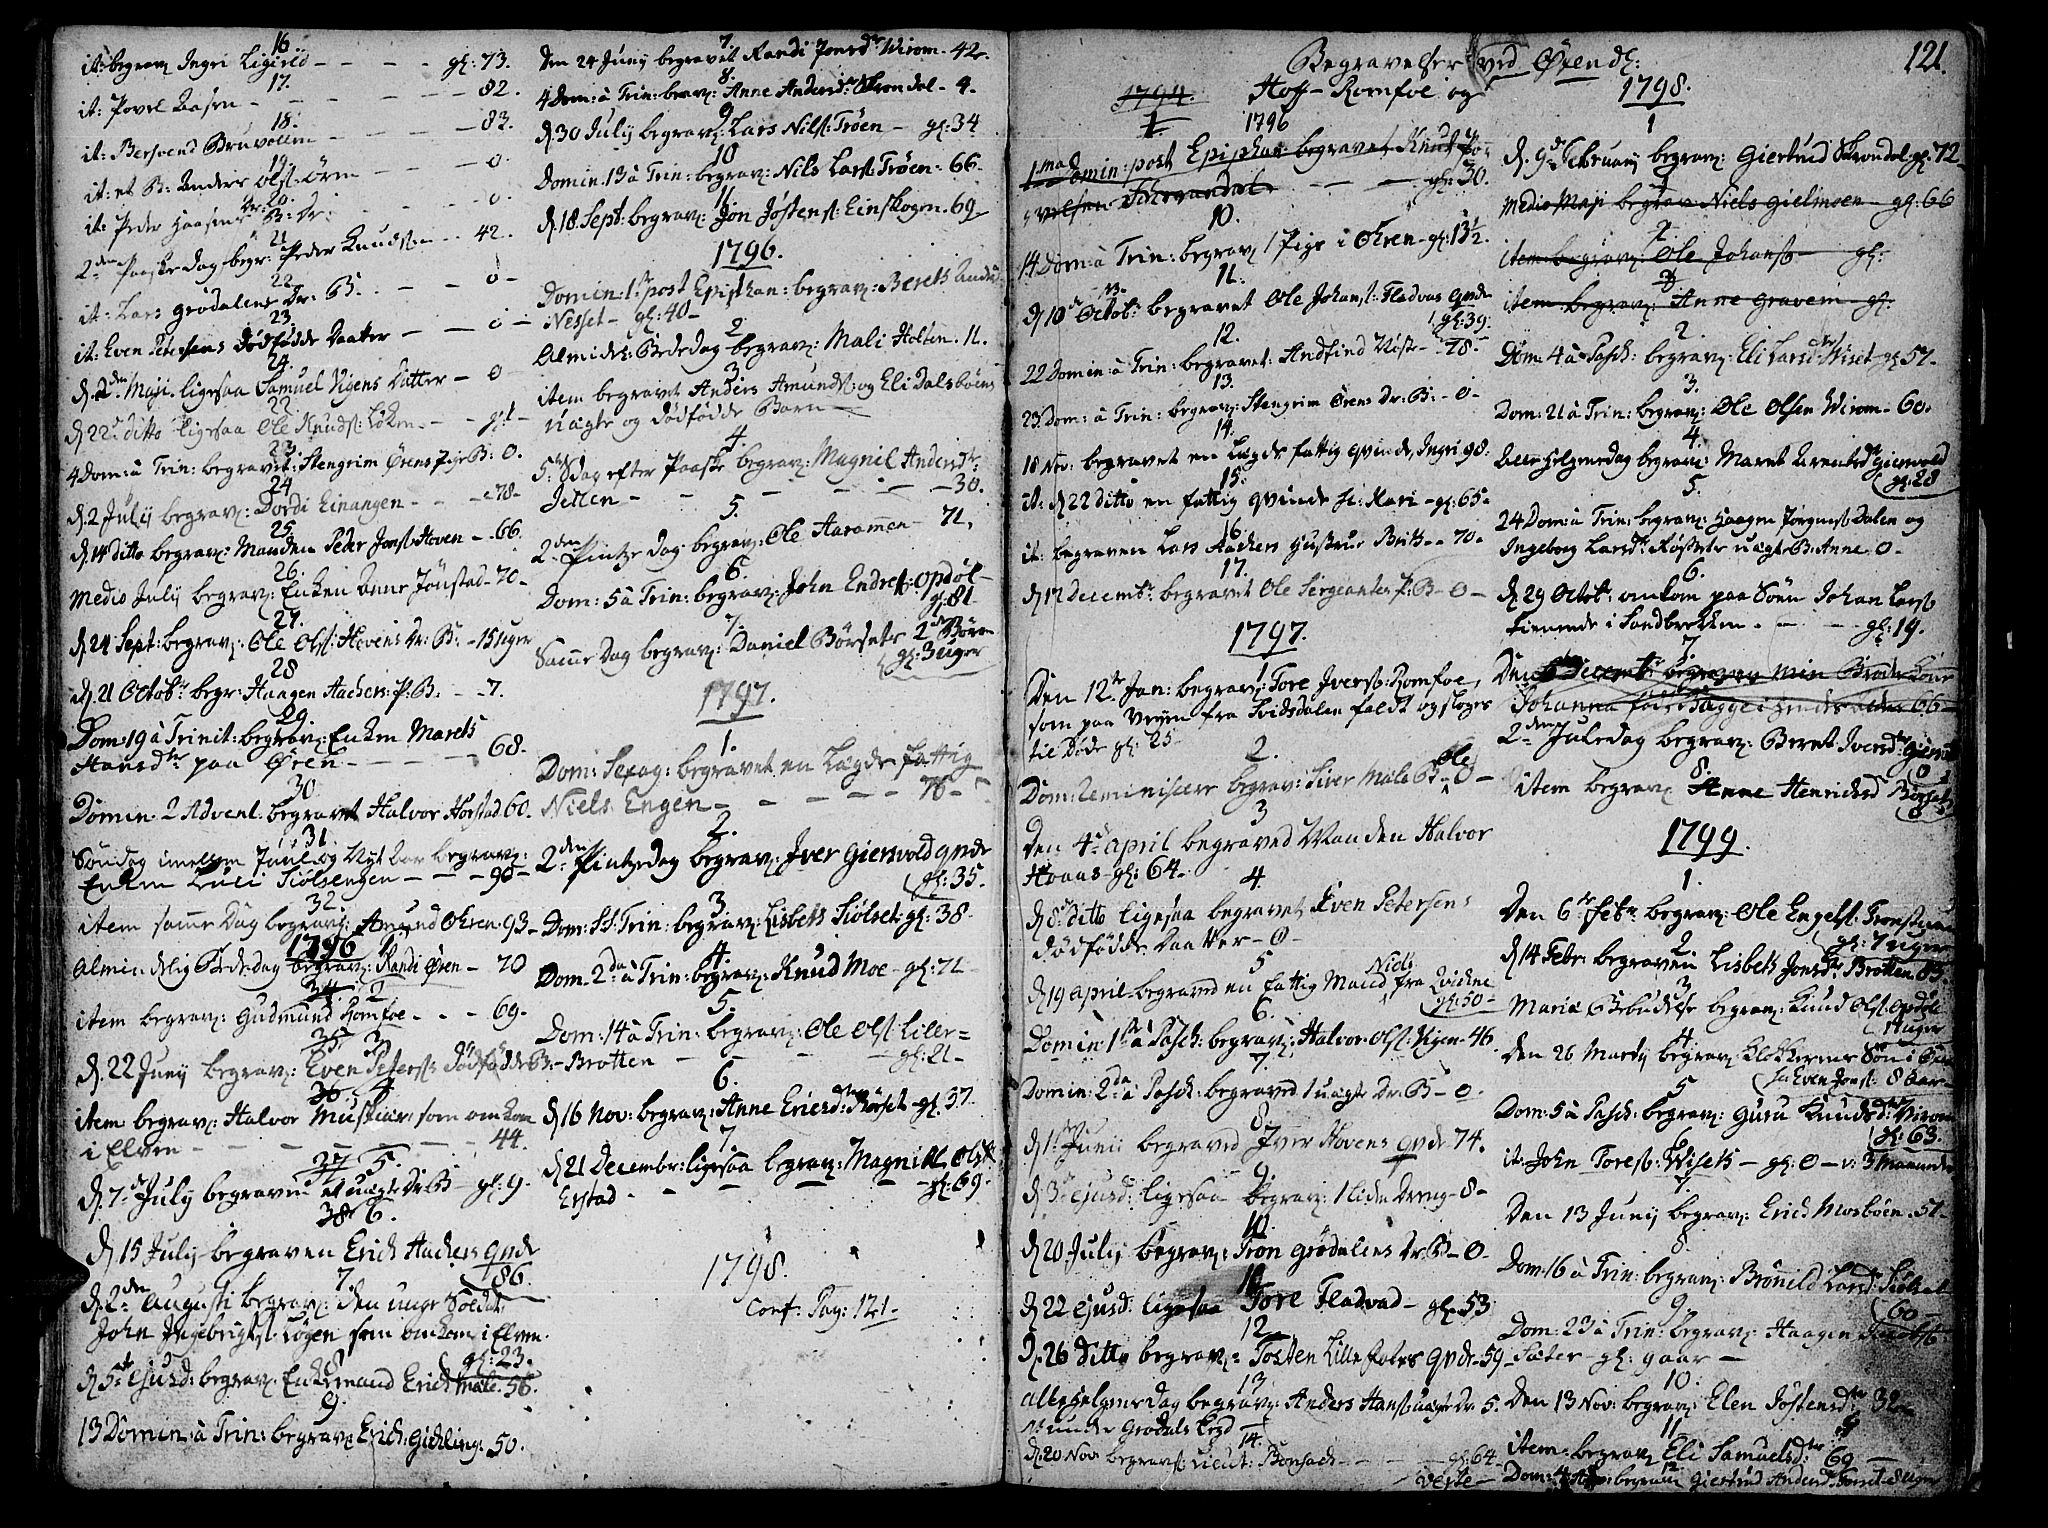 16
it: begrav: Ingri Ligird - - - gl: 73.
17.
it: Povel Aasen - - - - - - 82.
18.
it: Bersvend Bruvolen - - - 83.
19
it: et B: Anders Olss: Ørn - - - 0.
Nr: 20.
it: Peder Haasens B: Dr: - - - 0.
21
2den Paaske dag begr: Peder Knuds: - 42.
22
it: Lars Grødalens Dr: B. - - - 0 -
23.
it: Even Petersens Dødfødde Datter - - 0 -
24.
d. 2den Maji. ligesaa Samuel Vigens Datter - 0
22
d. 22de ditto ligesaa Ole Knuds: Løken - - gl:
23
4 Dom: à Trin: begravet: Stengrim Ørens Pige B: 0.
24
d. 2 Julij begrav: Dordi Einangen - - - 78 -
25
d. 14 ditto begrav: Manden Peder Jons: Hoven - 66.
26.
Medio Julij begrav: Enken Anne Jonstad - 70 -
27.
d. 24 Sept: begrav: Ole Ols: Hovens Dr: B: - 15 uger
28
d. 21 Octob: begr: Haagen Aachen: P. B. - - 7.
29
Dom: 19 à Trinit: begrav: Enken Marets
Hansdtr paa Øren - - - - 68.
30.
Domin: 2 Advent. begravet Halvor Horstad 60.
31.
Søndag imellem Juul og Nyt Aar begrav:
Enken Luci Siølsengen - - - 90 -
32.
item samme Dag begrav: Amund Ohren - 93 -
1796 1
Almindelig Bededag begrav: Randi Øren - 70
34. 2
item begrav: Gudmund Romfoe - - - 69.
35 3
d. 22 Junij begrav: Even Peters: dødfødde B: -
36 4
item begrav: Halvor Mustiar, som omkom
i Elven - - - - - - 44.
37 5.
d. 7de July begraven et uægte Dr: B - gl: 9.
38 6.
d. 15 Julij begraven Erich Hachens qvde
86.
7.
d. 2den Augusti begrav: den unge Soldat
John Ingebrigts: Løgen som omkom i Elven.
gl: 23.
8
d. 5te ejusd: begrav: Enkemand Erich Male. 56.
9.
13 Domin: à Trin: begrav: Erich Gickling: 50.
7.
Den 24 Junij begravet Randi Jonsdtr Wirom - 42.
8.
4 Dom: à Trin: begrav: Anne Andersd: Skrondal - 4.
9
d. 30 Julij begrav: Lars Nils: Trøen - gl: 34
10
Domin: 13 à Trin: begrav: Nils Lars: Trøen - 66.
11
d. 18 Sept: begrav: Jon Jostens: Einskogen. 69
1796.
1
Domin: 1ste post Epiphan: begrav: Bereth
i Nesset - gl: 40 -
2.
Almidel: Bededag begrav: Mali Holten. 11.
3
item begravet Anders Amunds: og Eli Dalsbøens
uægte og dødfødde Barn -
4.
5te Sdag efter Paaske begrav: Magnil Andersdtr
Jetten - - - - - - 30.
5.
2den Pintze Dag begrav: Ole Haramen - 71,
6.
Dom: 5 à Trin: begrav: John Endres: Opdøl -
gl: 81
7.
Samme Dag begrav: Daniel Børsets 2de Børn
gl: 3 uger
1797.
1.
Dom: Sexag: begravet en Lægde fattig
Niels Engen - - - - - 76 -
2.
2den Pintzedag begrav: Iver Gierswold qvde
gl: 35.
3
Dom: SS: Trin: begrav: Lisbeth Siølset - gl: 38.
4
Dom: 2da à Trin: begrav: Knud Moe - gl: 71 -
5
Dom: 14 à Trin: begrav: Ole Ols: Lille =
Brotten - - - - - - gl: 21 -
6.
d. 16 Nov: begrav: Anne Ericsd: Rørset - gl: 37.
7
d. 21 Decembr: ligesaa begrav: Magnill Olsd:
Erstad - - - - - gl: 69 -
1798.
Conf. Pag: 121 -
121.
Begravelser ved Ørendl:
Hoff - Romfoe og
1794.
1
1796
1ma Domin: post Epiphan begravet Knut
Schrondal - - - gl: 30.
10.
14 Dom: à Trin: begrav 1 Pige i Ohren - gl: 13½.
11.
d. 10de Octob: begravet Ole Johans: Fladvas qvde
gl: 39.
12.
22 Domin: à Trin: begravet: Andfind Voste - 78 -
13.
23 Dom: à Trin: begrav: Stengrim Ørens Dr: B: - 0 -
14.
18 Nov: begravet en Lægde fattig qvinde, Ingri 98.
15.
it: d. 22 ditto en fattig qvinde h: Kari - gl: 65 -
16
it: begraven Lars Aachens Hustrue Brith - - 70 -
17.
d. 17 Decembr: begravet Ole Sergeantes P: B - 0 -
1797.
1
Den 12te Jan: begrav: Tore Ivers: Romfoe,
som paa Veyen fra Svidsdalen faldt og sloges
til Døde gl: 25
2.
Dom: Reminiscere begrav: Siver Male B - Ole 0 -
3
Den 4de April begraved Manden Halvor
Hoaas - gl: 64 -
4.
d. 8de ditto ligesaa begravet Even Petersens
dødfødde Daatter - 0 -
5
d. 19 April begraved en fattig Mand Niels fra Qvikne
gl: 50 -
6.
Domin: 1ste à Pasch: begrav: Halvor Ols: Vigen - 46.
7.
Domin: 2da à Pasch: begraved 1 uægte Dr: B - 0 -
8
d. 1ste Junii begraved Iver Hovens qvde 74.
9.
d. 3de ejusd: ligesaa begrav: 1 liden Dreng - 8 -
10
d. 20 Julij begrav: Tron Grødalens Dr: B - 0 -
10
d. 22 ejusd: ligesaa Tore Fladvad - gl: 53
12
d. 26 ditto begrav: Tosten Lillefales qvde - 59 -
13
Allehelgensdag begrav: Anders Hans: uægte Dr. 5.
14.
d. 20 Nov: begrav: Lieut: Bonsach - - - - gl: 64
verte -
1798.
1
d. 9de Februarij begrav: Giertrud Skrondal gl: 72
Medio Maji begrav Niels Gielmoen - gl: 66
2
item: begrav: Ole Johans: - gl:
3
item begrav: Anne Gravem - gl:
2.
Dom: 4 à Pasch: begrav: Eli Larsdtr Wiset gl 57 -
3.
Dom: 21 à Trin: begrav: Ole Olsen Wirom - 60.
4.
Allehelgensdag begrav: Maret Arentsd: Gierswold
gl: 28
5.
24 Dom: à Trin: begrav: Haagen Jørgens: Dalen og
Ingeborg Larsdtr uægte B: Anne 0 -
6.
d. 29 Octob: omkom paa Søen Johan Lars:
tienende i Sandbrekken - - - gl: 19.
7
Den Decembr: begraven min Broder Kone
Johanna
2den Juledag begrav: Beret Iversdtr
0
8.
item begrav: Anne Henrichsd
1799.
1.
Den 6te Febr: begrav: Ole Engels:
gl: 7 uger
2
d. 14 Febr: begraven Lisbeth Jonsdtr Brotten. 83.
3
Mariæ Bebudelse begrav: Knud Ols: Opdøl
4
Den 26 Martij begrav: Klokkerens Søn i
h: Even Jons: 8 Aar -
5
Dom: 5 à Pasch: begrav: Guru Knudsdtr Virom
gl: 63.
it: John Tores: Wiseth - gl: 0 - v: 3 maaneder
7.
Den 13 Junij begrav: Erich Mosbøen. 57 -
8.
Dom: 16 à Trin: begrav: Brønild Larsd: Siølset
60 -
9
Dom: 23 à Trin: begrav: Haagen
Sæter - gl: 9 aar -
10.
Den 13 Nov: begrav: Elen Jostensdtr 32 -
11
item: begrav: Eli Samuelsdtr 69 -
12
begrav Giertrud Andersd: